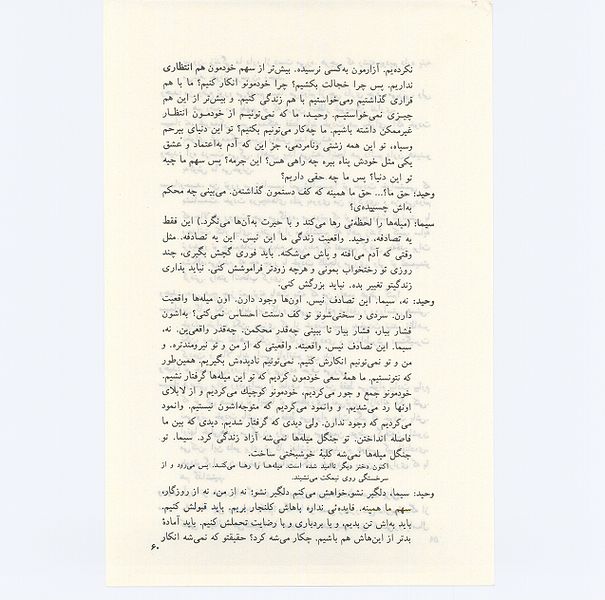 نکرده‌یم. آزارمون به‌کسی نرسیده. بیش‌تر از سهم خودمون هم انتظاری
نداریم. پس چرا خجالت بکشیم؟ چرا خودمونو انکار کنیم؟ ما با هم
قراری گذاشتیم ومی‌خواستیم با هم زندگی کنیم. و بیش‌تر از این هم
چیزی نمی‌خواستیم. وحید، ما که نمی‌تونیم از خودمون انتظار
غیرممکن داشته باشیم. ما چه‌کار می‌تونیم بکنیم؟ تو این دنیای بیرحم
وسیاه، تو این همه زشتی ونامردمی، جز این که آدم به‌اعتماد و عشق
یکی مثل خودش پناه ببره چه راهی هس؟ این جرمه؟ پس سهم ما چیه
تو این دنیا؟ پس ما چه حقی داریم؟
وحید: حق ما؟... حق ما همینه که کف دستمون گذاشته‌ن. می‌بینی چه محکم
به‌اش چسبیده‌ی؟
سیما: (میله‌ها را لحظه‌ئی رها می‌کند و با حیرت به‌آن‌ها می‌نگرد.) این فقط
یه تصادفه، وحید. واقعیت زندگی ما این نیس. این یه تصادفه. مثل
وقتی که آدم می‌افته و پاش می‌شکنه. باید فوری گچش بگیری، چند
روزی تو رختخواب بمونی و هرچه زودتر فراموشش کنی. نباید بذاری
زندگیتو تغییر بده. نباید بزرگش کنی.
وحید: نه، سیما. این تصادف نیس. اون‌ها وجود دارن. اون میله‌ها واقعیت
دارن. سردی و سختی‌شونو تو کف دستت احساس نمی‌کنی؟ به‌اشون
فشار بیار. فشار بیار تا ببینی چه‌قدر محکمن. چه‌قدر واقعی‌ین. نه،
سیما. این تصادف نیس. واقعیته. واقعیتی که از من و تو نیرومندتره. و
من و تو نمی‌تونیم انکارش کنیم. نمی‌تونیم نادیده‌ش بگیریم. همین‌طور
که نتونستیم. ما همهٔ سعی خودمون کردیم که تو این میله‌ها گرفتار نشیم.
خودمونو جمع و جور می‌کردیم، خودمونو کوچیك می‌کردیم و از لابلای
اونها رد می‌شدیم. و وانمود می‌کردیم که متوجه‌اشون نیستیم. وانمود
می‌کردیم که وجود ندارن. ولی دیدی که گرفتار شدیم. دیدی که بین ما
فاصله انداختن. تو جنگل میله‌ها نمی‌شه آزاد زندگی کرد. سیما. تو
جنگل میله‌ها نمی‌شه کلبهٔ خوشبختی ساخت.
اکنون دختر دیگر ناامید شده است. میله‌ها را رها می‌کند. پس می‌رود و از
سرخستگی روی نیمکت می‌نشیند.
وحید: سیما، دلگیر نشو.خواهش می‌کنم دلگیر نشو؛ نه از من، نه از روزگار.
سهم ما همینه. فایده‌ئی نداره باهاش کلنجار بریم. باید قبولش کنیم.
باید به‌اش تن بدیم، و با بردباری و با رضایت تحملش کنیم. باید آمادهٔ
بدتر از این‌هاش هم باشیم. چکار می‌شه کرد؟ حقیقتو که نمی‌شه انکار
۶۰